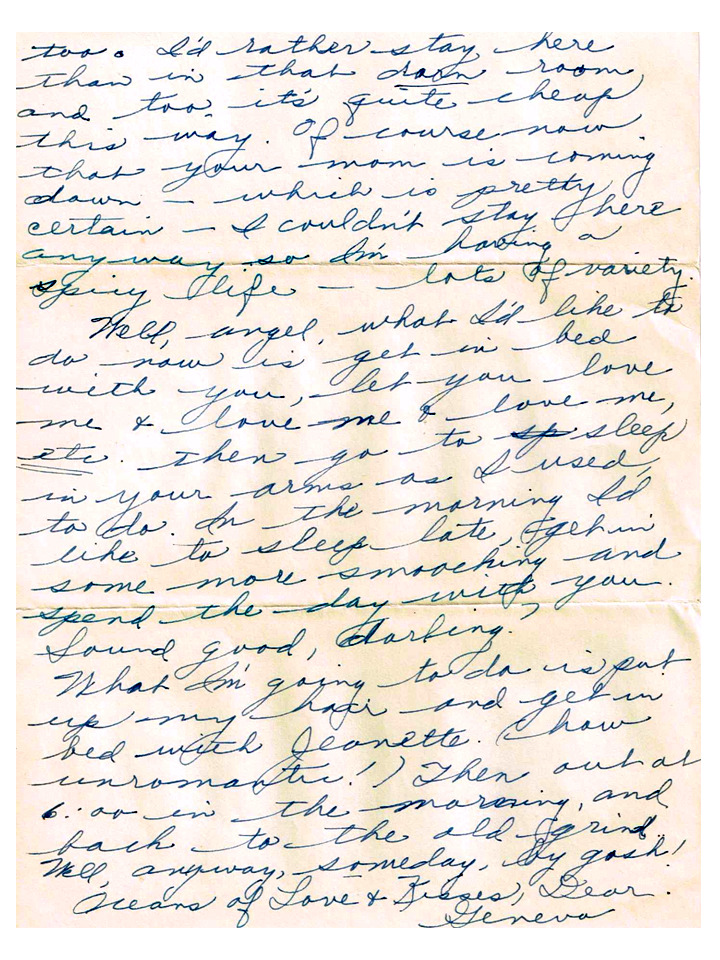 too. I'd rather stay here
than in that darn room,
and too, it's quite cheap
this way. Of course now
that your mom is coming
down – which is pretty
certain – I couldn't stay here
anyway so I'm having a
spicy life – lots of variety.
Well, angel, what I'd like to
do now is get in bed
with you, let you love
me & love me & love me,
etc. then go to sp sleep
in your arms as I used
to do. In the morning I'd
like to sleep late, get in
some more smooching and
spend the day with you.
Sound good, darling?
What I'm going to do is put
up my hair and get in
bed with Jeanette. (how
unromantic!) Then out at
6:00 in the morning, and
back to the old grind.
Well, anyway, someday, by gosh!
Oceans of Love & Kisses, Dear.
Geneva